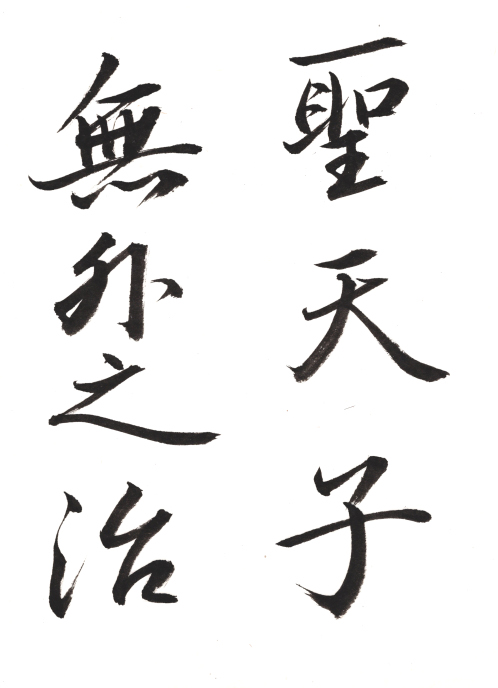 聖天子
無外之治